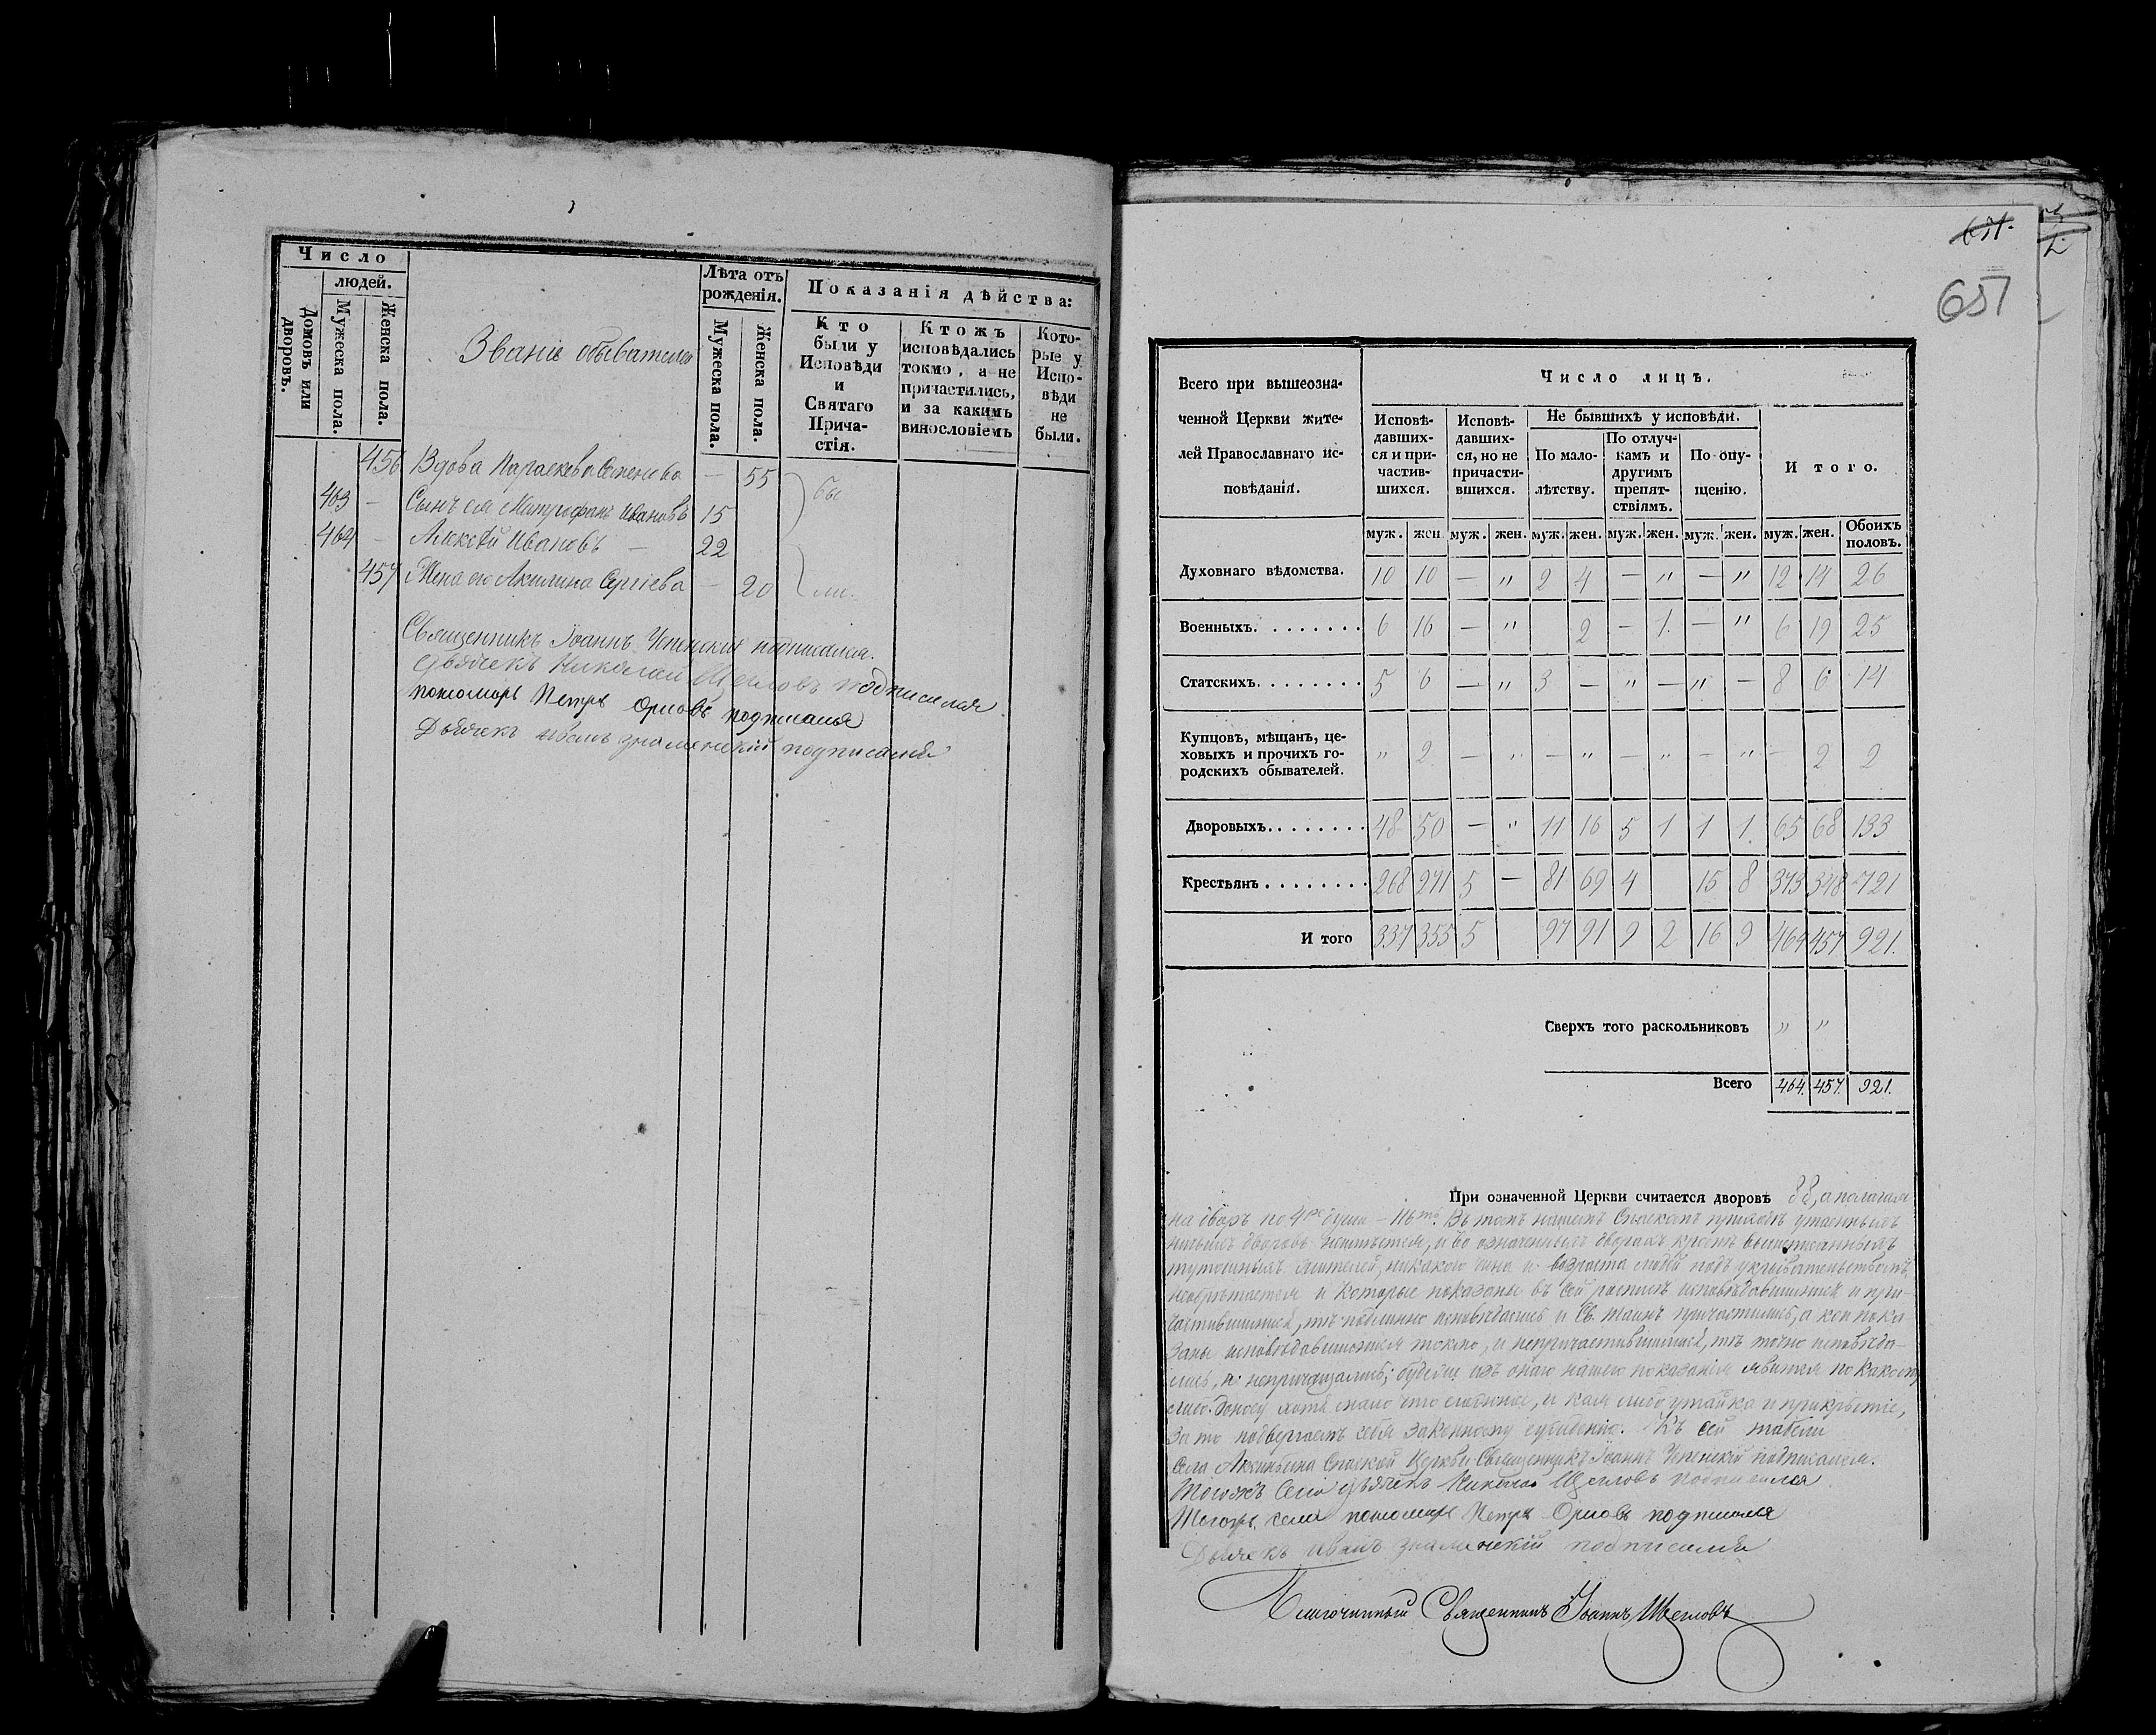 Число
людей.
Домовъ или дворовъ.
Мужеска пола.
Женска пола.
Званіе обывателей
Лѣта отъ рожденія.
Мужеска пола.
Женска пола.
Показанія дѣйства:
Кто были у Исповѣди и Святаго Причастія.
Ктожъ исповѣдались токмо, а не причастились, и за какимъ винословіемъ
Которые у Исповѣди не были.
456 Вдова Параскева Семенова — 55
463 — Сынъ ея Митрофанъ Ивановъ 15
бы
464 — Алексѣй Ивановъ — 22
457 Жена его Акилина Сергіева — 20
ли.
Священникъ Іоаннъ Успенскій подписался.
Дьячекъ Николай Щегловъ подписался
пономарь Петръ Орловъ подписался
Дьячекъ Иванъ Знаменскій подписался
651.
657
Всего при вышеозначенной Церкви жителей Православнаго исповѣданія.
Число лицъ.
Исповѣдавшихся и причастившихся.
Исповѣдавшихся, но не причастившихся.
Не бывшихъ у исповѣди.
По малолѣтству.
По отлучкамъ и другимъ препятствіямъ.
По опущенію.
И того.
муж. жен. муж. жен. муж. жен. муж. жен. муж. жен. муж. жен. Обоихъ половъ.
Духовнаго вѣдомства. 10 10 — " 2 4 — " — " 12 14 26
Военныхъ. 6 16 — " 2 — 1. — " 6 19 25
Статскихъ. 5 6 — " 3 — " — " — 8 6 14
Купцовъ, мѣщанъ, цеховыхъ и прочихъ городскихъ обывателей. " 2 — " — " — " — " — 2 2
Дворовыхъ. 48 50 — " 11 16 5 1 1 1. 65 68 133
Крестьянъ 268 271 5 — 81 69 4 15 8 373 348 721
И того 337 355 5 97 91 9 2 16 9 464 457 921.
Сверхъ того раскольниковъ " "
Всего 464. 457. 921.
При означенной Церкви считается дворовъ 88, а полагая
на дворъ по 4ре души – 116ть. Въ томъ нашемъ Спаскомъ приходѣ утаенныхъ
дворовъ неимѣется, и во означенныхъ дворахъ кромѣ вышеписанныхъ
тутошныхъ жителей, никакого чина и возраста людей подъ укрывательствомъ
необрѣтается и которые показаны въ сей росписи исповѣдавшимися и при-
частившимися, тѣ подлинно исповѣдались и Св. таинъ причастились, а кои пока
заны исповѣдавшимися токмо, и непричастившимися, тѣ точно исповѣда-
лись, и непричащались; будеже изъ онаго нашего показанія явится по какому
либо доносу хотя мало что ложное, и какая либо утайка и прикрытіе,
за то подвергаемъ себя законному сужденію. Къ сей табели
Села Спаской Церкви Священникъ Іоаннъ Успенскій подписался.
Тогожъ Села дьячекъ Николай Щегловъ подписался
Тогожъ села пономарь Петръ Орловъ подписался
Дьячекъ Иванъ Знаменскій подписался
Благочинный Священникъ Іоаннъ Щегловъ